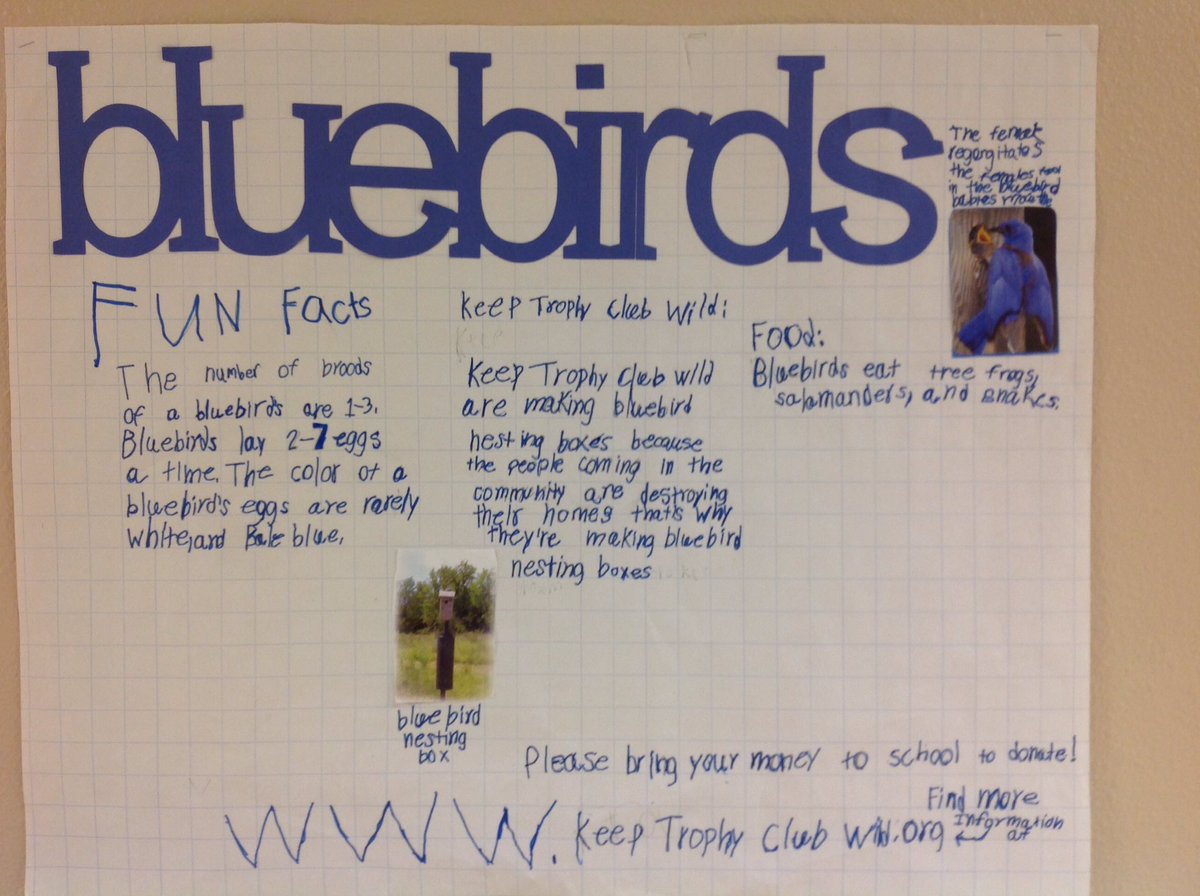 bluebirds
The female
regorgitates
the females food
in the bluebird
babies mouth
FUN Facts
The number of broods
of a bluebird's are 1-3.
Bluebirds lay 2-7 eggs
a time. The color of a
bluebird's eggs are rarely
white, and Bale blue.
Keep Trophy Club Wild:
Keep Trophy Club wild
are making bluebird
nesting boxes because
the people coming in the
community are destroying
their homes that's why
they're making bluebird
nesting boxes
Food:
Bluebirds eat tree frogs,
salamanders, and snakes.
bluebird
nesting
box
Please bring your money to school to donate!
Find more
Information
at
WWW. Keep Trophy Club Wild.org